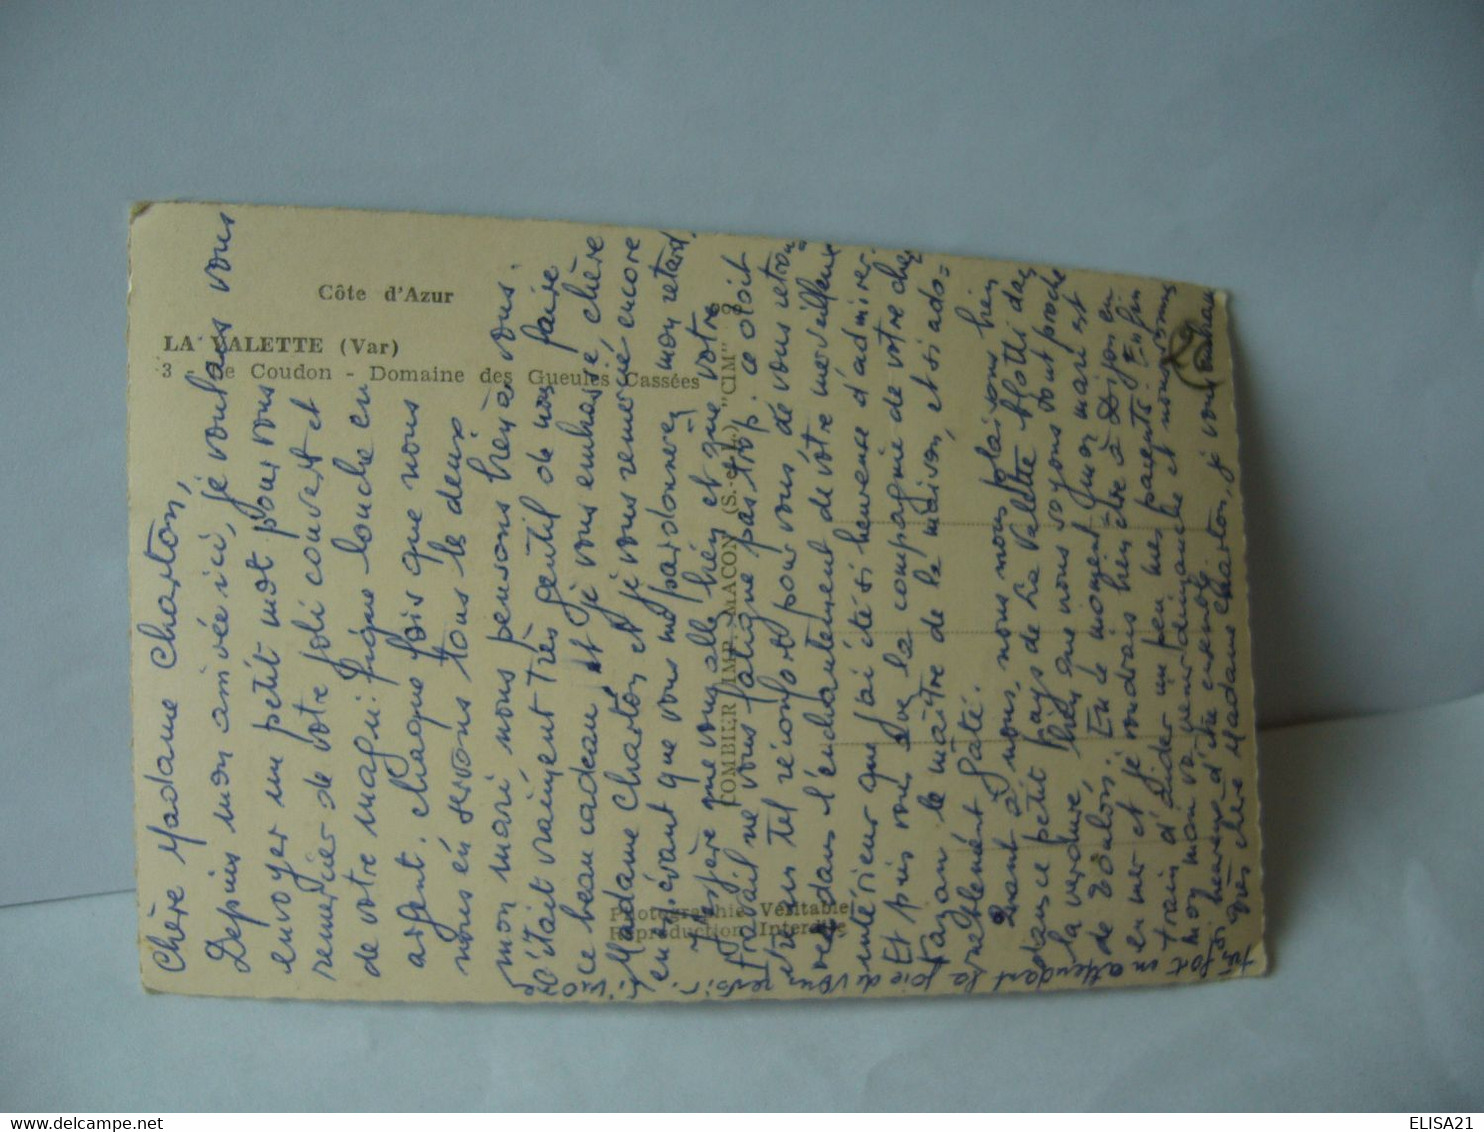 Côte d'Azur
LA VALETTE (Var)
3 - Le Coudon - Domaine des Gueules Cassées
COMBIER IMP. MACON (S.-et-L.) "CIM"
Photographie Véritable
Reproduction Interdite
Chère Madame Charton,
Depuis mon arrivée ici, je voulais vous
envoyer un petit mot pour vous
remercier de votre joli couvert et
de votre magnifique louche en
argent. chaque fois que nous
nous en servons tous les deux
mon mari, nous pensons bien à vous.
C'était vraiment très gentil de nous faire
ce beau cadeau et je vous embrasse, chère
Madame Charton et je vous remercie encore
en espérant que vous me pardonnerez mon retard.
J'espère que vous allez bien et que votre
travail ne vous fatigue pas trop. ce doit
être un tel réconfort pour vous, de vous retrou
ver dans l'enchantement de votre merveilleux
intérieur que j'ai été si heureuse d'admirer.
Et puis vous avez la compagnie de votre cher
le maître de la maison, et si ado-
rablement gâté.
Quant à nous, nous nous plaisons bien
dans ce petit pays de La Valette blotti dans
la verdure, bien que nous soyons tout proche
de Toulon. En ce moment mon mari est
en mer et je voudrais bien être à Dijon en
train d'aider un peu mes parents. Enfin
mon mari va venir dimanche et nous sommes
si heureux d'être ensemble.
Très chère Madame Charton, je vous embrasse
très fort en attendant la joie de vous revoir.